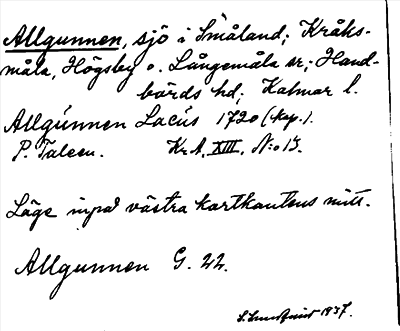 Allgunnen, sjö i Småland; Kråks-
måla, Högsby o. Långemåla sr; Hand-
börds hd; Kalmar l.
Allgúnnen Lacús 1720 (kop.).
P. Kr.A. XIII. N:o 13.
Läge invid västra kartkantens mitt.
Allgunnen G. 22.
1937.